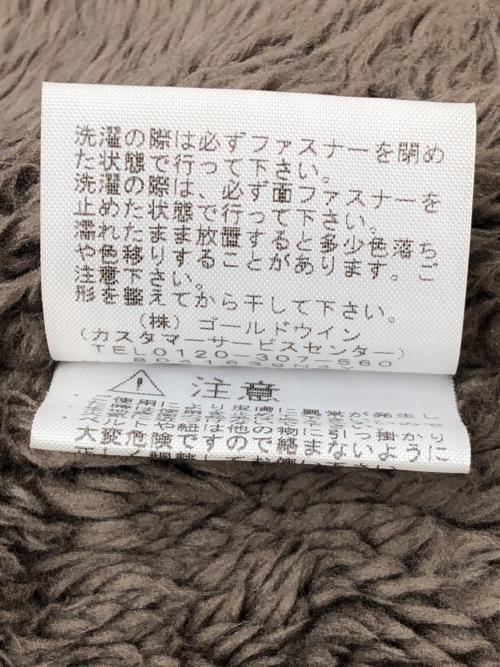 洗濯の際は必ずファスナーを閉め
た状態で行って下さい。
洗濯の際は、必ず面ファスナーを
止めた状態で行って下さい。
濡れたまま放置すると多少色落ち
や色移りすることがあります。ご
注意下さい。
形を整えてから干して下さい。
(株) ゴールドウイン
(カスタマーサービスセンター)
TEL0120-307-560
注意
大変危険ですので絡まないように